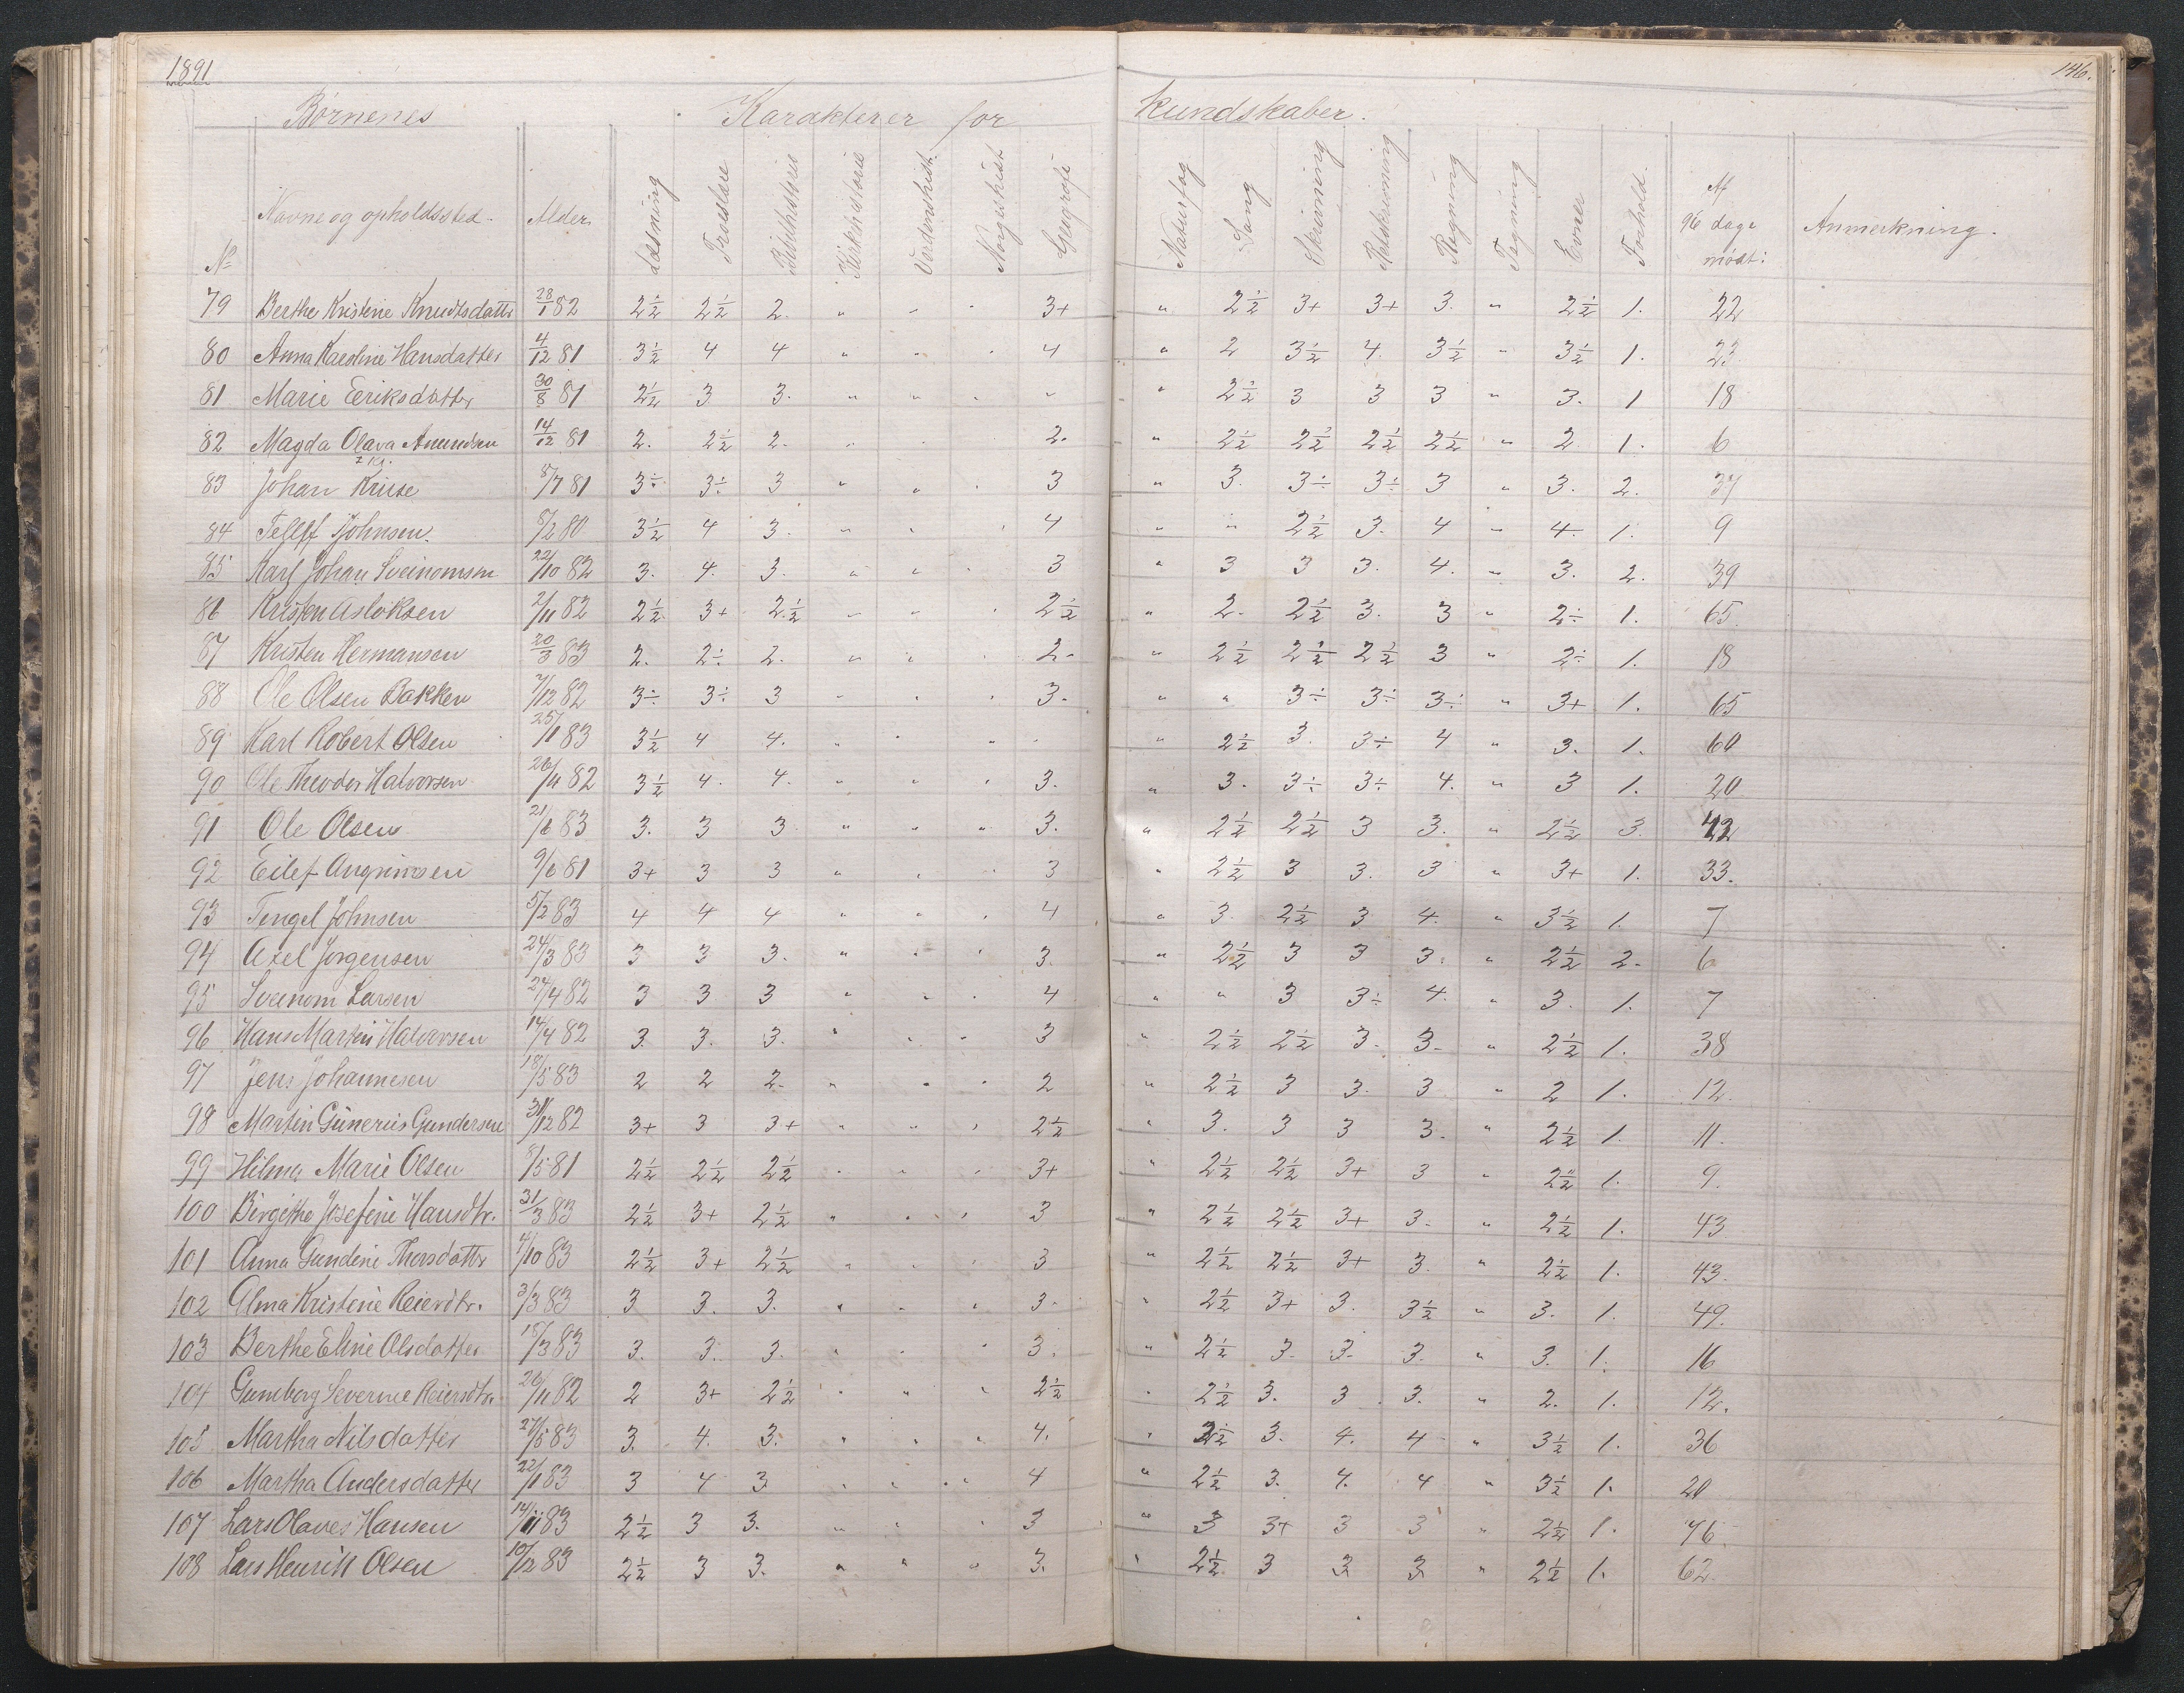 1891
146.
Børnenes Karakterer for kundskaber.
No Navne og opholdssted. Alder. Læsning Troeslære Bibelhistorie Kirkhistorie Verdenshist. Norgeshist Geografi Naturfag Sang Skrivning Retskrivning Regning Tegning Evner Forhold. Af 96 dage mødt: Anmerkning.
79 Berthe Kristine Knudtsdatter 28/1 82 2½ 2½ 2. " " " 3+ " 2½ 3+ 3+ 3. " 2½ 1. 22
80 Anna Karoline Hansdatter 4/12 81 3½ 4 4 " " " 4 " 2 3½ 4. 3½ " 3½ 1. 23
81 Marie Eeriksdatter 30/8 81 2½ 3 3. " " " " " 2½ 3 3 3 " 3. 1 18
82 Magda Olava Amundsen 14/12 81 2. 2½ 2. " " 2. " 2½ 2½ 2½ 2½ " 2. 1. 6
2 kl.
83 Johan Kruse 5/7 81 3÷ 3÷ 3 " " " 3 " 3. 3÷ 3÷ 3 " 3. 2. 37
84 Tellef Tjohnsen. 8/2 80 3½ 4 3. " " " 4 " " 2½ 3. 4 " 4. 1. 9
85 Karl Johan Sveinomsen 22/10 82 3. 4. 3. " " " 3 " 3 3 3. 4. " 3. 2. 39
86 Kristen Asloksen 2/11 82 2½ 3+ 2½ " " " 2½ " 2. 2½ 3. 3 " 2÷ 1. 65.
87 Kristen Hermansen 20/3 83 2. 2÷ 2. " " " 2. " 2½ 2½ 2½ 3 " 2÷ 1. 18
88 Ole Olsen Bakken 7/12 82 3÷ 3÷ 3 " " " 3. " " 3÷ 3÷ 3÷ " 3+ 1. 65
89 Karl Robert Olsen 25/1 83 3½ 4 4. " " " " " 2½ 3. 3÷ 4 " 3. 1. 60
90 Ole Theodor Halvorsen 26/11 82 3½ 4. 4. " " " 3. " 3. 3÷ 3÷ 4. " 3 1. 20
91 Ole Olsen 21/6 83 3. 3 3 " " " 3. " 2½ 2½ 3 3. " 2½ 3. 42
92 Eilef Angrimsen 9/6 81 3+ 3 3 " " " 3 " 2½ 3 3. 3 " 3+ 1. 33.
93 Tengel Johnsen 5/2 83 4 4 4 " " " 4 " 3 2½ 3 4. " 3½ 1. 7
94 Axel Jørgensen 24/3 83 3 3 3. " " " 3. " 2½ 3 3 3. " 2½ 2. 6
95 Sveinom Larsen 24/4 82 3 3 3 " " " 4 " " 3 3÷ 4. " 3. 1. 7
96 Hans Martin Halvorsen 14/4 82 3. 3. 3. " " " 3 " 2½ 2½ 3. 3. " 2½ 1. 38
97 Jens Johannesen 18/5 83 2 2 2. " " " 2 " 2½ 3 3. 3 " 2 1. 12.
98 Martin Gunerius Gundersen 31/12 82 3+ 3 3+ " " " 2½ " 3. 3 3 3. " 2½ 1. 11.
99 Hilma Marie Olsen 8/5 81 2½ 2½ 2½ " " " 3+ " 2½ 2½ 3+ 3 " 2½ 1. 9.
100 Birgithe Josefine Hansdtr. 31/3 83 2½ 3+ 2½ " " " 3 " 2½ 2½ 3+ 3. " 2½ 1. 43
101 Anna Gundine Thorsdattr 4/10 83 2½ 3+ 2½ " " " 3 " 2½ 2½ 3+ 3. " 2½ 1. 43.
102 Alma Kristine Reierdtr. 3/3 83 3 3. 3. " " " 3. " 2½ 3+ 3. 3½ " 3. 1. 49.
103 Berthe Eline Olsdatter 18/3 83 3. 3. 3. " " " 3. " 2½ 3. 3. 3. " 3. 1. 16
104 Guneborg Severine Reiersdtr. 26/11 82 2 3+ 2½ " " " 2½ " 2½ 3. 3 3. " 2. 1. 12.
105 Martha Nilsdatter 27/5 83 3. 4. 3. " " " 4. " 2½ 3. 4. 4 " 3½ 1. 36
106 Martha Andersdatter 22/1 83 3 4 3. " " " 4 " 2½ 3. 4. 4 " 3½ 1. 20
107 Lars Olaves Hansen 14/11 83 2½ 3 3. " " " 3 " 3 3+ 3 3 " 2½ 1. 76.
108 Lars Henrik Olsen 10/12 83 2½ 3 3. " " " 3. " 2½ 3 3. 3. " 2½ 1. 62.